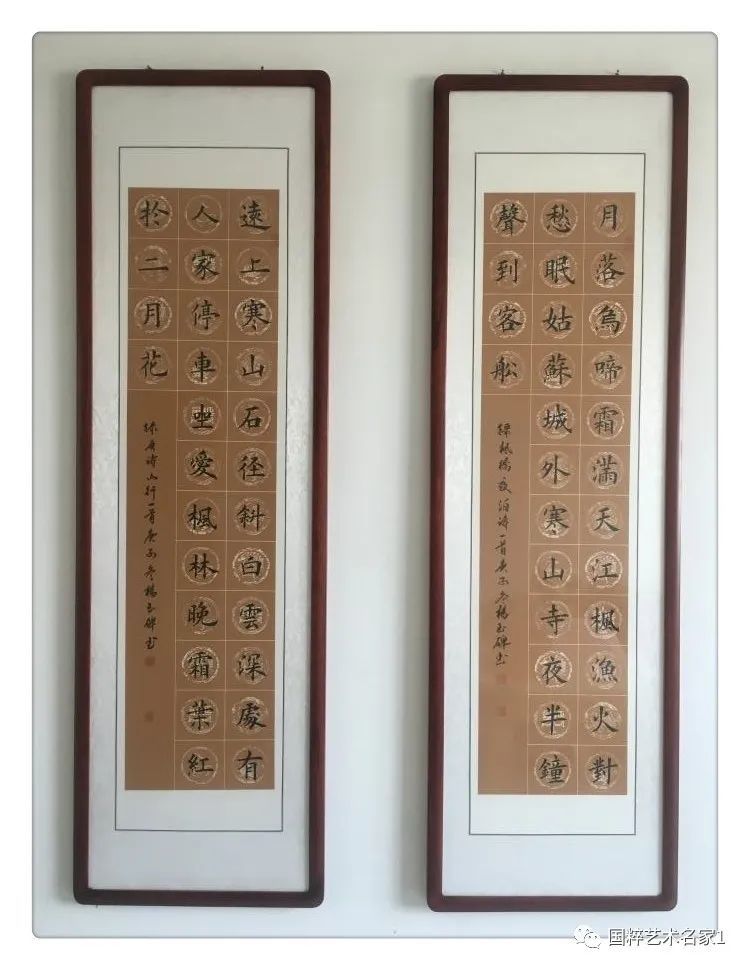 月落烏啼霜滿天江楓漁火對
愁眠姑蘇城外寒山寺夜半鐘
聲到客船
錄楓橋夜泊詩一首庚子冬楊玉碑書
遠上寒山石径斜白雲深處有
人家停車坐愛楓林晚霜葉紅
於二月花
錄唐詩山行一首庚子冬楊玉碑書
国粹艺术名家1